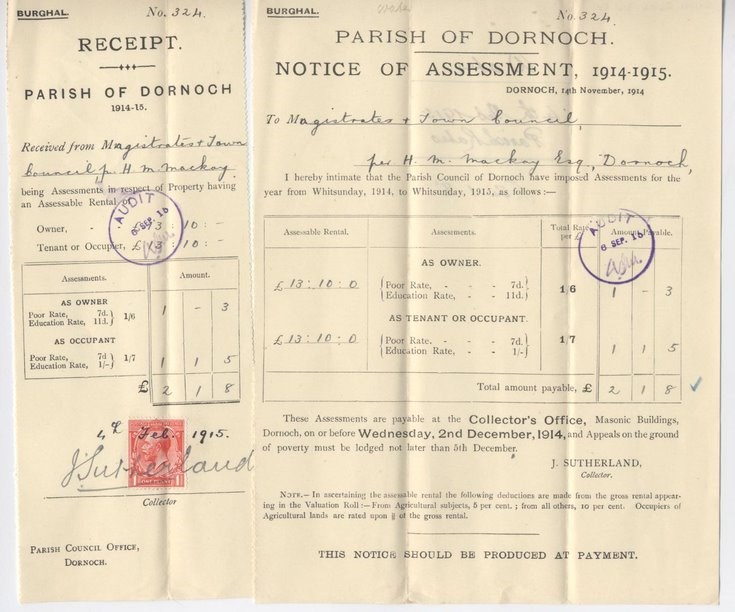 BURGHAL. No. 324.
RECEIPT.
PARISH OF DORNOCH
1914-15.
Received from Magistrates & Town
Council p. H M Mackay
being Assessments in respect of Property having
an Assessable Rental of
Owner, - 13 : 10 : -
Tenant or Occupier, £13 : 10 : -
AUDIT
6 SEP. 15
Assessments. Amount.
AS OWNER
Poor Rate, 7d.
Education Rate, 11d. 1/6 1 - 3
AS OCCUPANT
Poor Rate, 7d
Education Rate, 1/- 1/7 1 1 5
£ 2 1 8
4th Feb. 1915.
J Sutherland
Collector
PARISH COUNCIL OFFICE,
DORNOCH.
BURGHAL. No. 324
PARISH OF DORNOCH.
NOTICE OF ASSESSMENT, 1914-1915.
DORNOCH, 14th November, 1914
To Magistrates & Town Council,
per H. M. Mackay Esq, Dornoch,
I hereby intimate that the Parish Council of Dornoch have imposed Assessments for the
year from Whitsunday, 1914, to Whitsunday, 1915, as follows :—
Assessable Rental. Assessments. Total Rate per £ Amount Payable.
AUDIT
6 SEP. 15
AS OWNER.
£13 : 10 : 0 Poor Rate, - - - 7d.
Education Rate, - - 11d. 1/6 1 - 3
AS TENANT OR OCCUPANT.
£13 : 10 : 0 Poor Rate. - - - 7d.
Education Rate, - - 1/- 1/7 1 1 5
Total amount payable, £ 2 1 8
These Assessments are payable at the Collector's Office, Masonic Buildings,
Dornoch, on or before Wednesday, 2nd December, 1914, and Appeals on the ground
of poverty must be lodged not later than 5th December.
J. SUTHERLAND,
Collector.
NOTE.—In ascertaining the assessable rental the following deductions are made from the gross rental appear-
ing in the Valuation Roll :—From Agricultural subjects, 5 per cent. ; from all others, 10 per cent. Occupiers of
Agricultural lands are rated upon of the gross rental.
THIS NOTICE SHOULD BE PRODUCED AT PAYMENT.